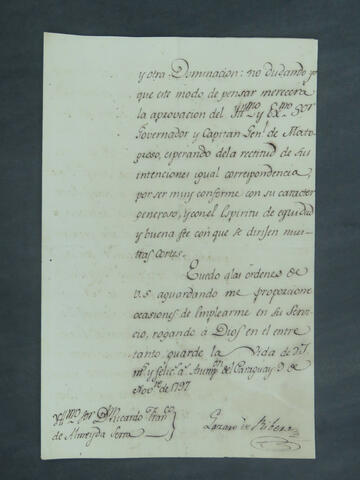 y otra Dominacion: no dudando yo
que este modo de pensar merecera
la aprovacion del Yll.mo y Ex.mo S.or
Governador y Capitan Gen.l de Mato-
groso, esperando dela rectitud de sus
intenciones igual correspondencia,
por ser muy conforme con su caracter
generoso, y con el Espiritu de equidad
y buena fee con que se dirijen nues-
tras cortes.
Quedo a las ordenes de
V.S. aguardando me proporcione
ocasiones de emplearme en su servi-
cio, rogando à Dios en el entre
tanto guarde la Vida de V.S.
m.s y felic.s a.s del Paraguay 9 de
Nov.re de 1797.
Yll.mo Sor D.n Ricardo Fran.co
de Almeyda Serra
Lazaro de Ribera